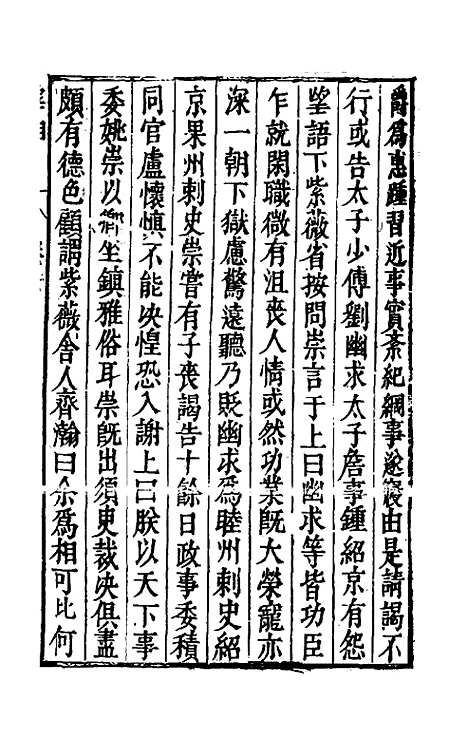 爵爲惠踵習近事實紊紀綱事遂寢由是請謁不
行或告太子少傅劉幽求太子詹事鍾紹京有怨
望語下紫薇省按問崇言于上曰幽求等皆功臣
乍就閑職微有沮喪人情或然功業旣大榮寵亦
深一朝下獄慮驚遠聽乃貶幽求爲睦州刺史紹
京果州刺史崇嘗有子喪謁告十餘日政事委積
同官盧懷慎不能决惶恐入謝上曰朕以天下事
委姚崇以卿坐鎮雅俗耳崇旣出須臾裁决俱盡
頗有德色顧謂紫薇舍人齊澣曰余爲相可比何